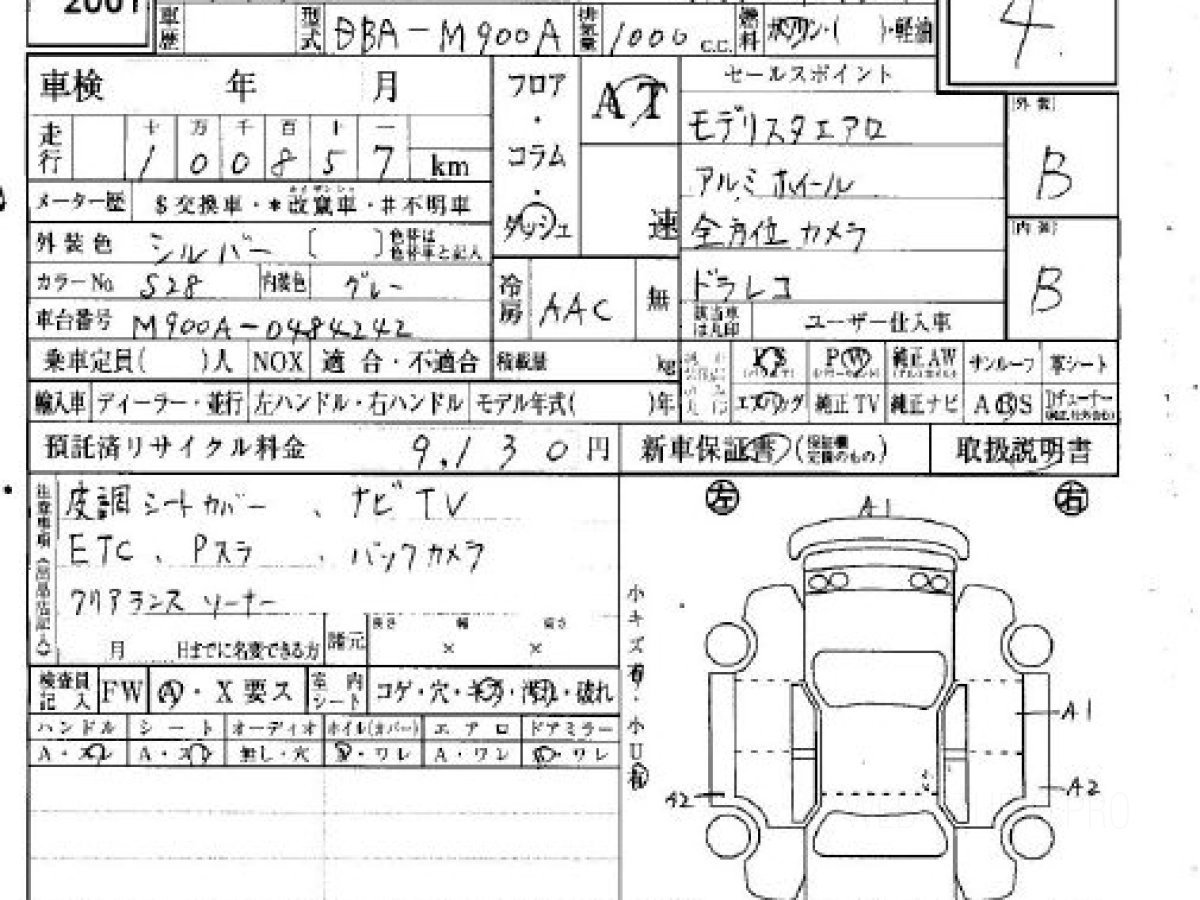 2001
車歴 型式 DBA-M900A 排気量 1000 C.C. 燃料 ガソリン・( )・軽油
4
車検 年 月 フロア・コラム・ダッシュ AT 速
セールスポイント
モデリスタエアロ
アルミホイール
全方位カメラ
ドラレコ
[外装] B
[内装] B
走行 十 万 千 百 十 一
1 0 0 8 5 7 km
メーター歴 $交換車・*改竄車・#不明車
外装色 シルバー [ ] 色替は色替車と記入
カラーNo. S28 内装色 グレー
冷房 AAC 無
車台番号 M900A-0484242
該当車は丸印 ユーザー仕入車
乗車定員( )人 NOX 適合・不適合 積載量 kg PS PW 純正AW サンルーフ 革シート
輸入車 ディーラー・並行 左ハンドル・右ハンドル モデル年式( )年 エアバッグ 純正TV 純正ナビ ABS Dチューナー
預託済リサイクル料金 9,130円 新車保証書(保証欄記載のもの) 取扱説明書
注意事項
皮調シートカバー、ナビTV
ETC、Pスラ、バックカメラ
クリアランスソーナー
月 日までに名変できる方 諸元 長さ 幅 高さ
× ×
検査員記入 FW A・X要ス 室内シート コゲ・穴・キズ・汚れ・破れ
ハンドル シート オーディオ ホイル(カバー) エアロ ドアミラー
A・スレ A・スレ 無し・穴 A・ワレ A・ワレ A・ワレ
左 右
小キズ有・小U有
A1
A1
A2
A2